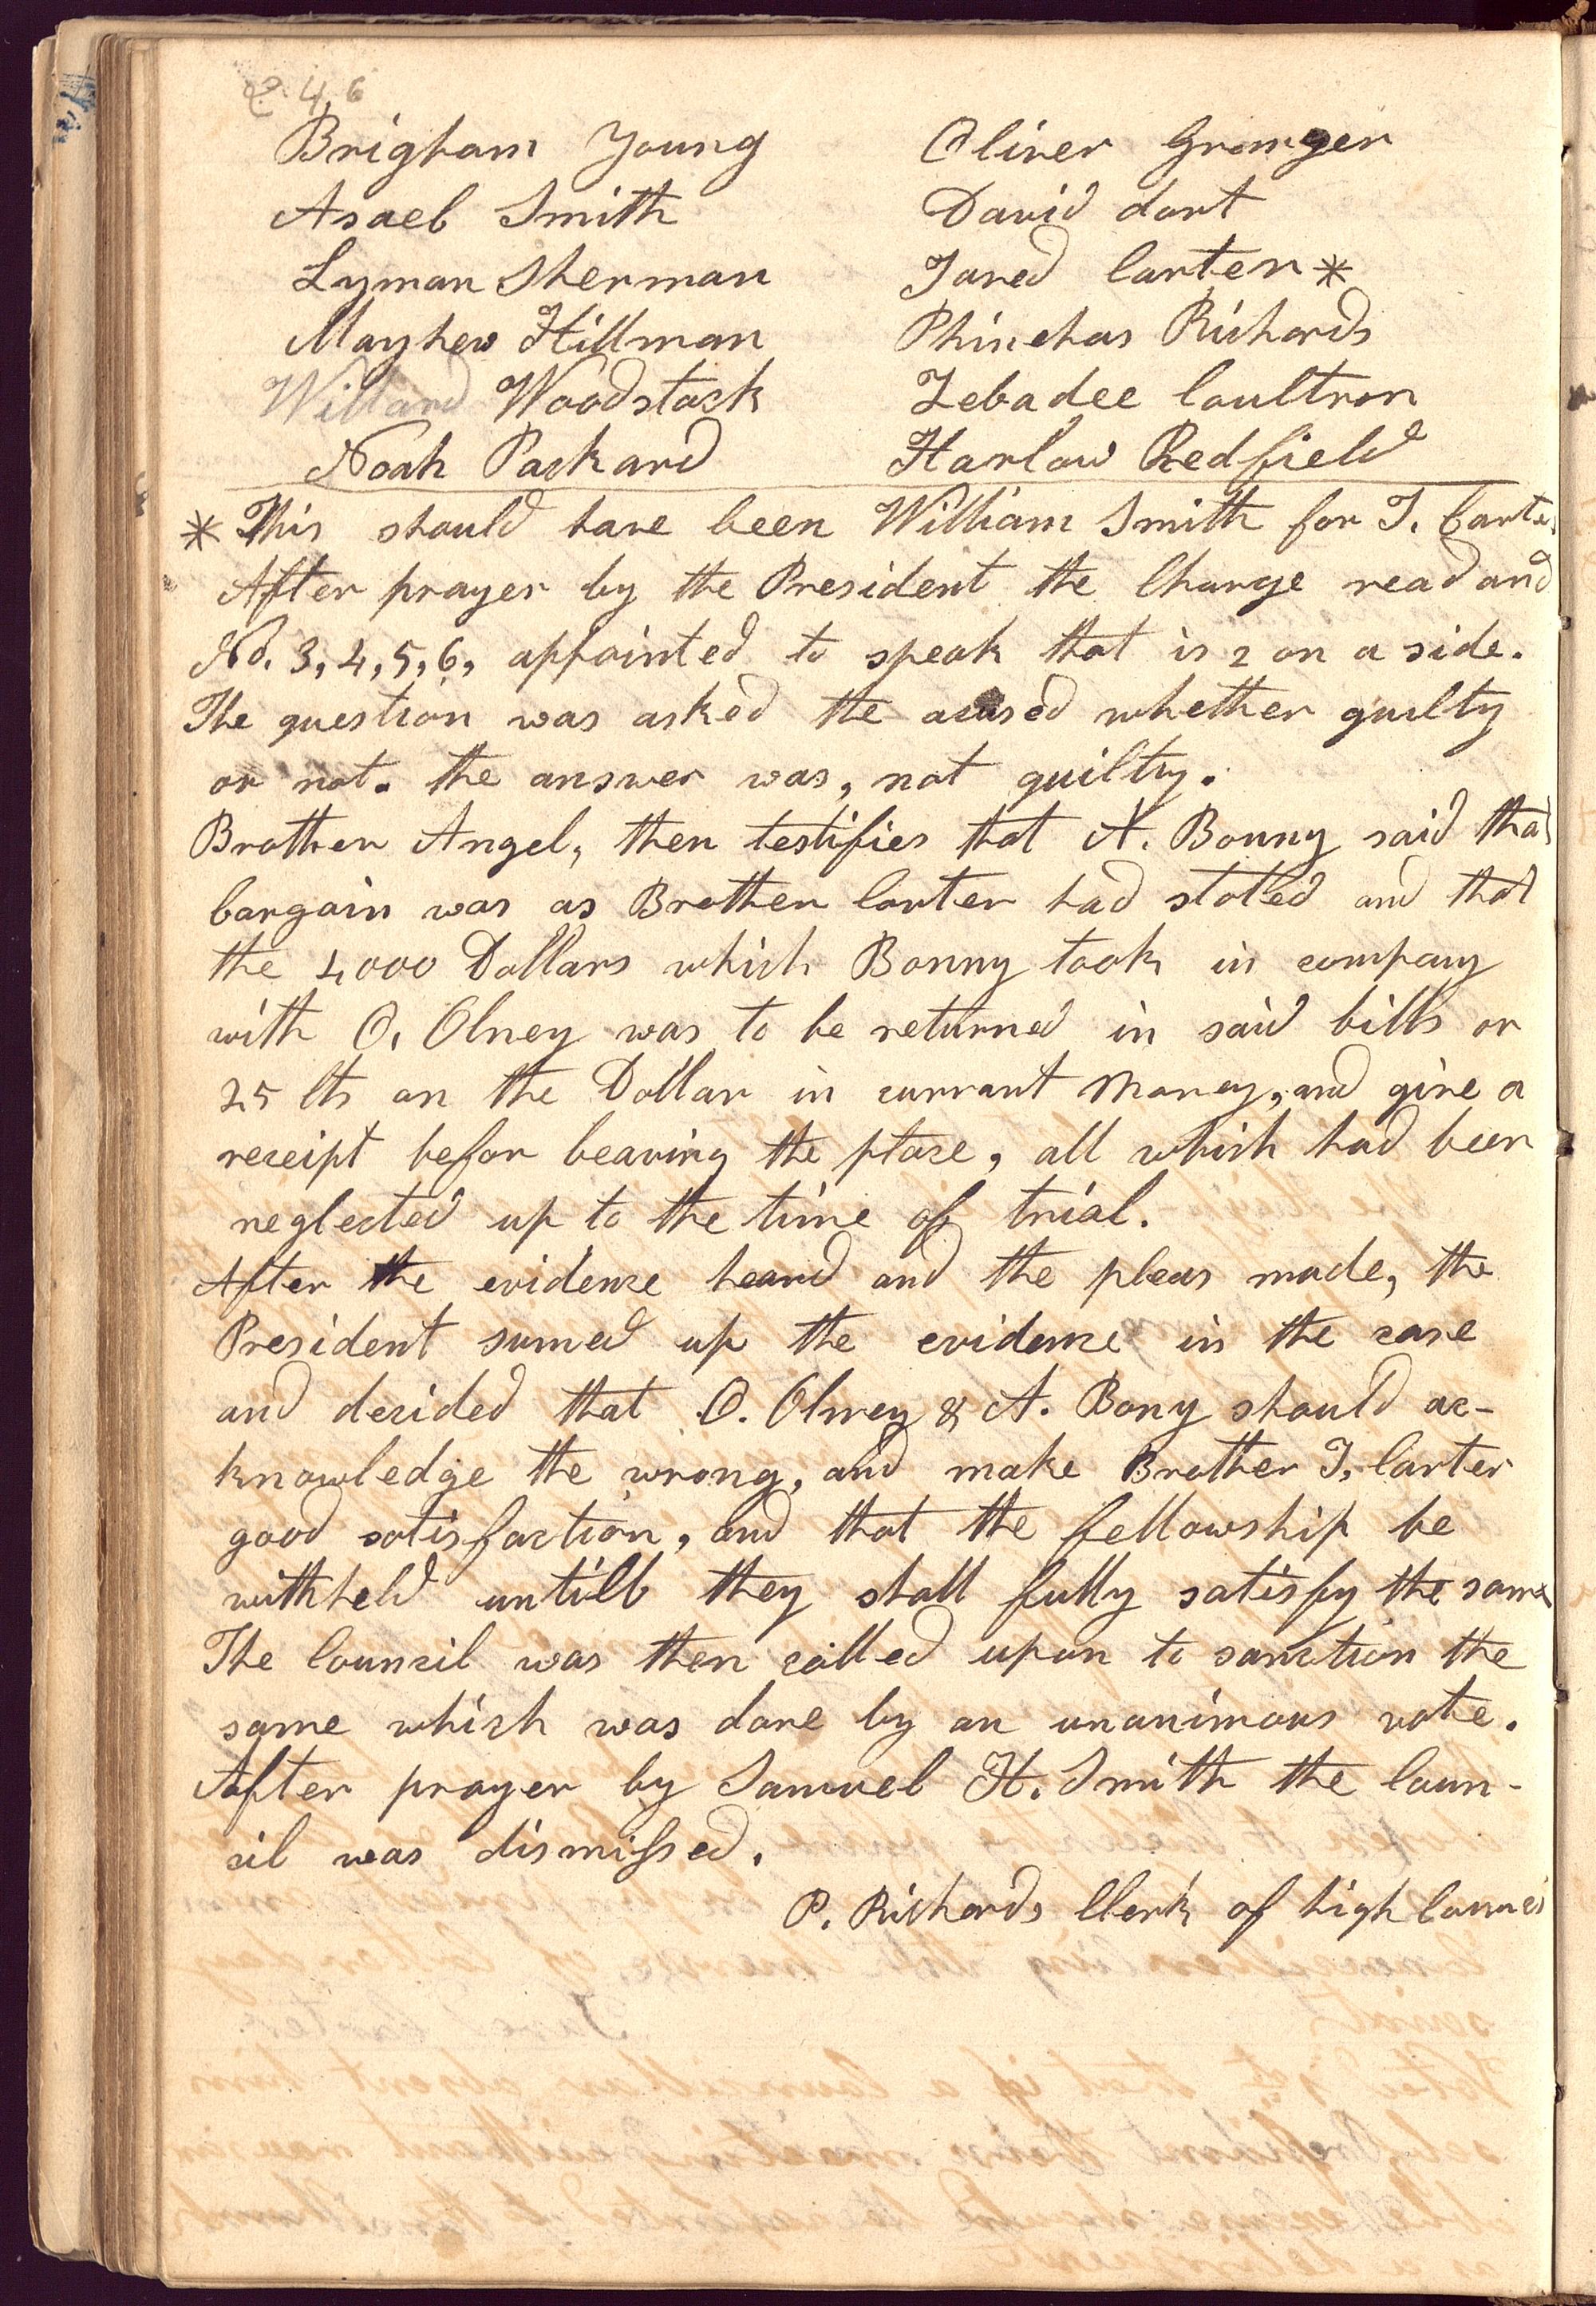 246
Brigham Young Oliver Granger
Asael Smith David dort
Lyman Sherman Jared Carter*
Mayhew Hillman Phinehas Richards
Willard Woodstock Zebadee Coultron
Noah Packard Harlow Redfield
* This should have been William Smith for J. Carter
After prayer by the President the Charge read and
No. 3, 4, 5, 6, appointed to speak that is 2 on a side.
The question was asked the acused whether guilty
or not. the answer was, not guilty.
Brother Angel, then testifies that A. Bonny said that
bargain was as Brother Carter had stated and that
the 4000 Dollars which Bonny took in company
with O. Olney was to be returned in said bills or
25 Cts on the Dollar in currant money, and give a
receipt befor leaving the place, all which had been
neglected up to the time of trial.
After the evidence heard and the pleas made, the
President sumed up the evidence in the case
and decided that O. Olney & A. Bony should ac-
knowledge the wrong, and make Brother J. Carter
good satisfaction, and that the fellowship be
withheld untill they shall fully satisfy the same
The Council was then called upon to sanction the
same which was done by an unanimous vote.
After prayer by Samuel H. Smith the Coun-
cil was dismissed.
P. Richards Clerk of high Council